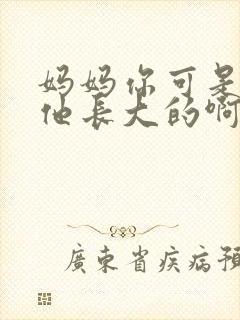 妈妈你可是
他長大的啊
廣東省疾病預